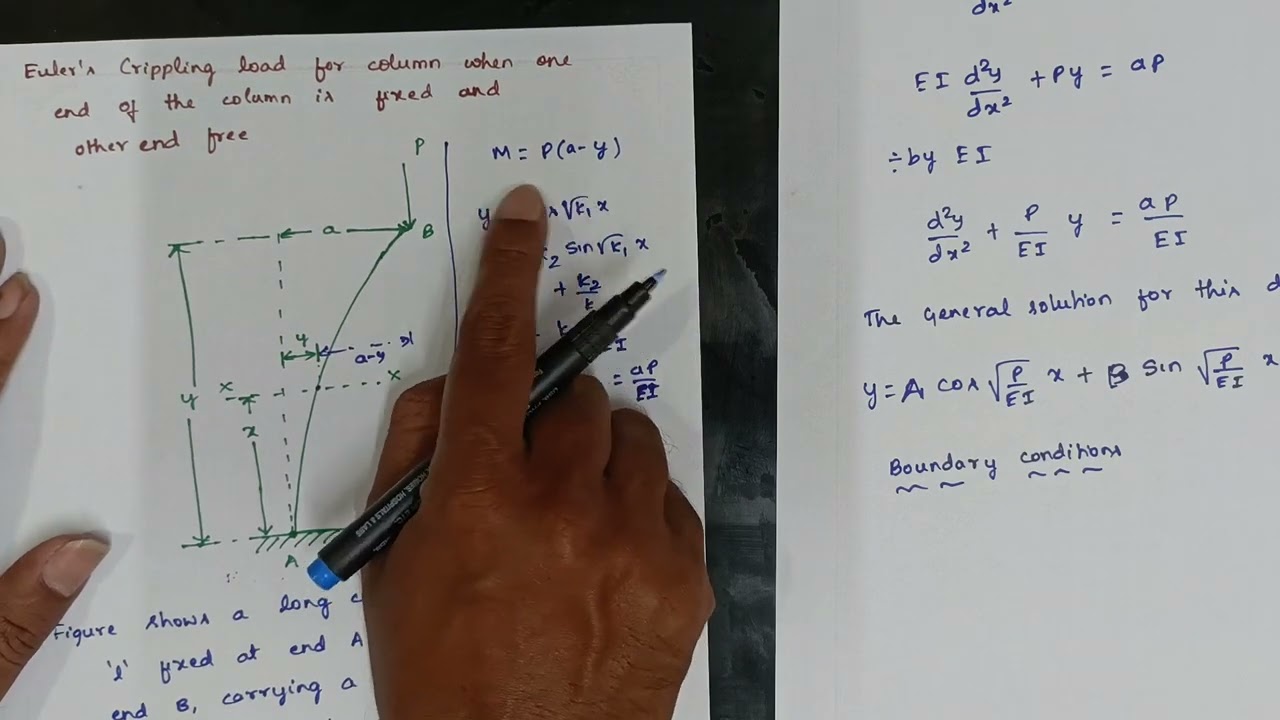 Euler's Crippling load for column when one
end of the column is fixed and
other end free
P
a
B
y
a-y
x
x
y
x
A
M = P(a-y)
y
s √k₁ x
k₂ sin √k₁ x
+ k₂/k
I
= aP/EI
Figure shows a long
'l' fixed at end A
end B, carrying a
dx²
EI d²y/dx² + Py = aP
÷by EI
d²y/dx² + P/EI y = aP/EI
The General solution for this d
y = A cos √P/EI x + B sin √P/EI x
Boundary conditions